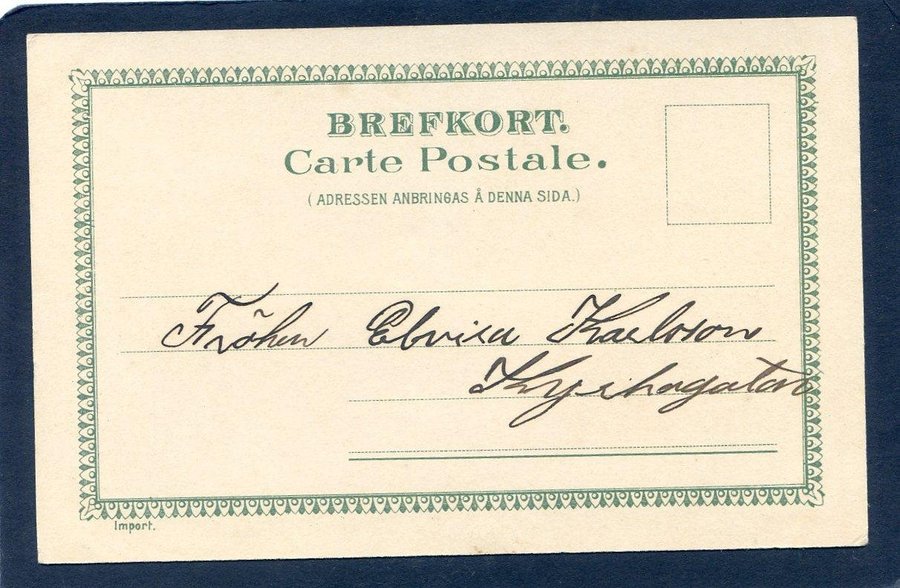 BREFKORT.
Carte Postale.
(ADRESSEN ANBRINGAS Å DENNA SIDA.)
Fröken Elvira Karlsson
Kyrkogatan
Import.